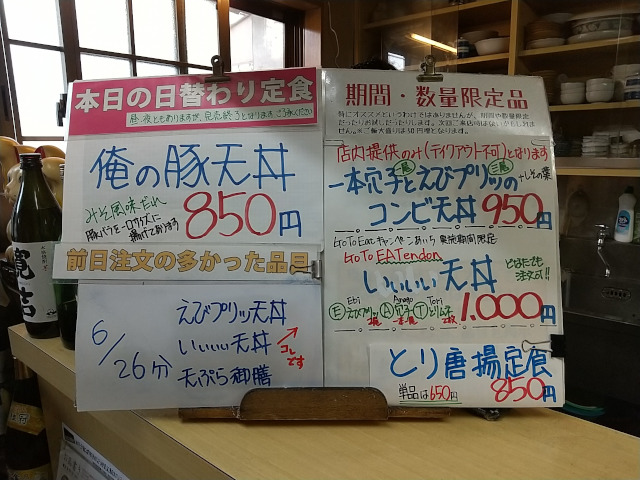 本日の日替わり定食
昼、夜ともありますが、完売終了となります。ご了承ください
俺の豚天丼
みそ風味だれ
850円
前日注文の多かった品目
6/26分
えびプリッ天丼
いいいい天丼
天ぷら御膳
コレです
期間・数量限定品
特にオススメというわけではありませんが、期間や数量限定
だったりお試しだったりします。次回ご来店時はないかもしれま
せん。※ご飯大盛りは50円増となります。
店内提供のみ(テイクアウト不可)となります
一本穴子とえびプリッの
二尾
コンビ天丼 950円
GoToEatキャンペーンあいち 実施期間限定
GoTo EATendon
いいいい天丼
どなたでも
注文可!!
Ebi Anago Tori
1.000円
とり唐揚定食
単品は650円
850円